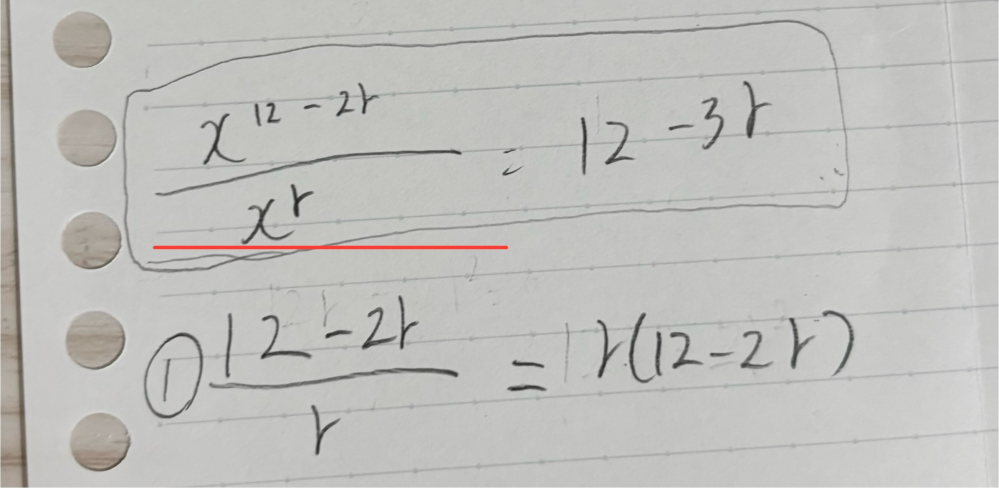 x^(12-2r) / x^r = 12-3r
① (12-2r) / r = r(12-2r)